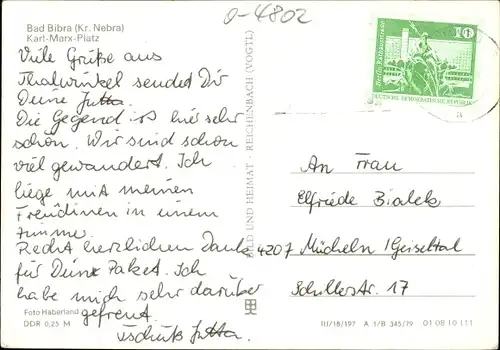 Bad Bibra (Kr. Nebra)
Karl-Marx-Platz
O-4802
Viele Grüße aus
Thalwinkel sendet Dir
Deine Jutta.
Die Gegend ist hier sehr
schön. Wir sind schon
viel gewandert. Ich
liege mit meinen
Freundinen in einem
Zimme.
Recht herzlichen Dank
für Dein Paket. Ich
habe mich sehr darüber
gefreut.
Tschüß Jutta
Foto Haberland
DDR 0,25 M
BILD UND HEIMAT · REICHENBACH (VOGTL)
10
Berlin, Rathausstraße
DEUTSCHE DEMOKRATISCHE REPUBLIK
An Frau
Elfriede Bialek
4207 Mücheln /Geiseltal
Schillerstr. 17
III/18/197 A 1/B 345/79 01 08 10 111